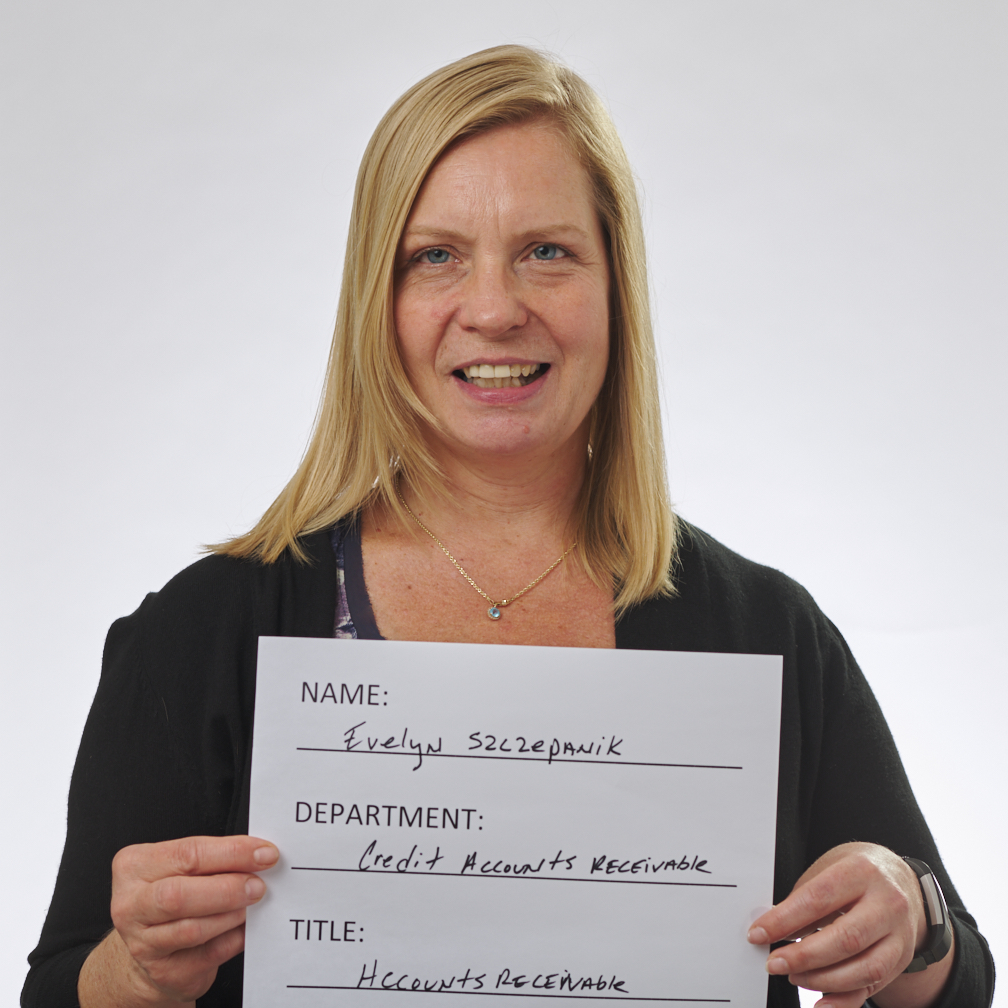 NAME:
Evelyn Szczepanik
DEPARTMENT:
Credit Accounts Receivable
TITLE:
Accounts Receivable